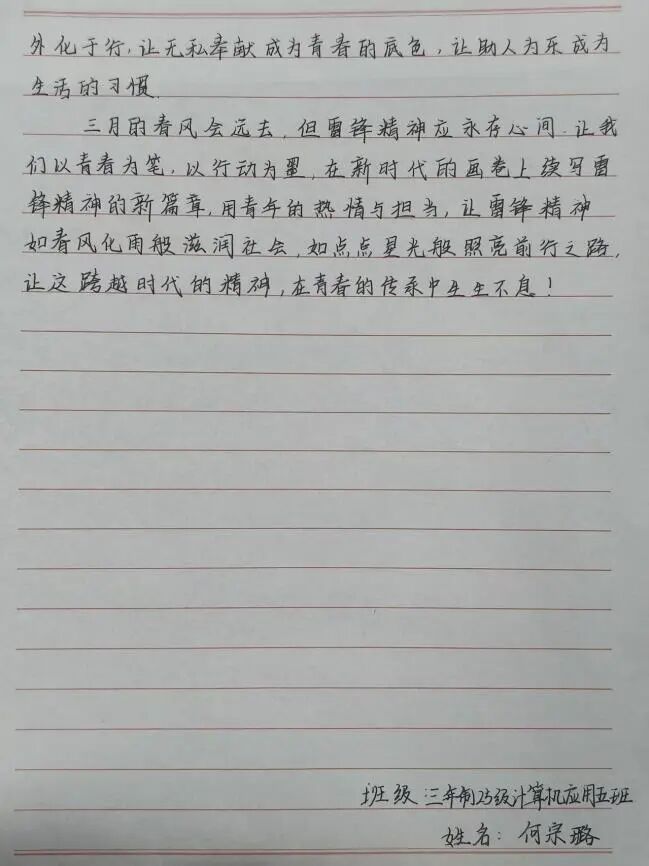 外化于行,让无私奉献成为青春的底色,让助人为乐成为
生活的习惯.
三月的春风会远去,但雷锋精神应永存心间.让我
们以青春为笔,以行动为墨,在新时代的画卷上续写雷
锋精神的新篇章,用青年的热情与担当,让雷锋精神
如春风化雨般滋润社会,如点点星光般照亮前行之路,
让这跨越时代的精神,在青春的传承中生生不息!
班级:三年制23级计算机应用五班
姓名:何宗璐